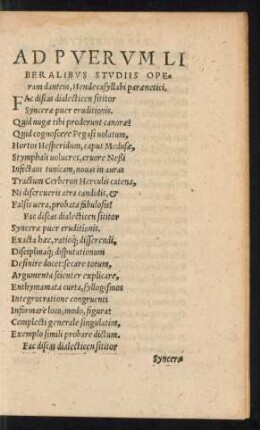 AD PVERVM LI
BERALIBVS STVDIIS OPE-
ram dantem, Hendecasyllabi parænetici.
FAc discas dialecticen sititor
Synceræ puer eruditionis.
Quid nugæ tibi proderunt canoræ?
Quid cognoscere Pegasi uolatum,
Hortos Hesperidum, caput Medusæ,
Stymphali uolucres, cruore Nessi
Infectam tunicam, nouas in auras
Tractum Cerberon Herculis catena,
Ni discreueris atra candidis, &
Falsis uera, probata fabulosis?
Fac discas dialecticen sititor
Synceræ puer eruditionis.
Exacta hæc, ratioq́; disserendi,
Disciplinaq́; disputationum
Definire docet: secare totum,
Argumenta scienter explicare,
Enthymamata curta, syllogismos
Integros ratione congruenti
Informare loco, modo, figura:
Complecti generale singulatim,
Exemplo simili probare dictum.
Fac discas dialecticen sititor
Synceræ